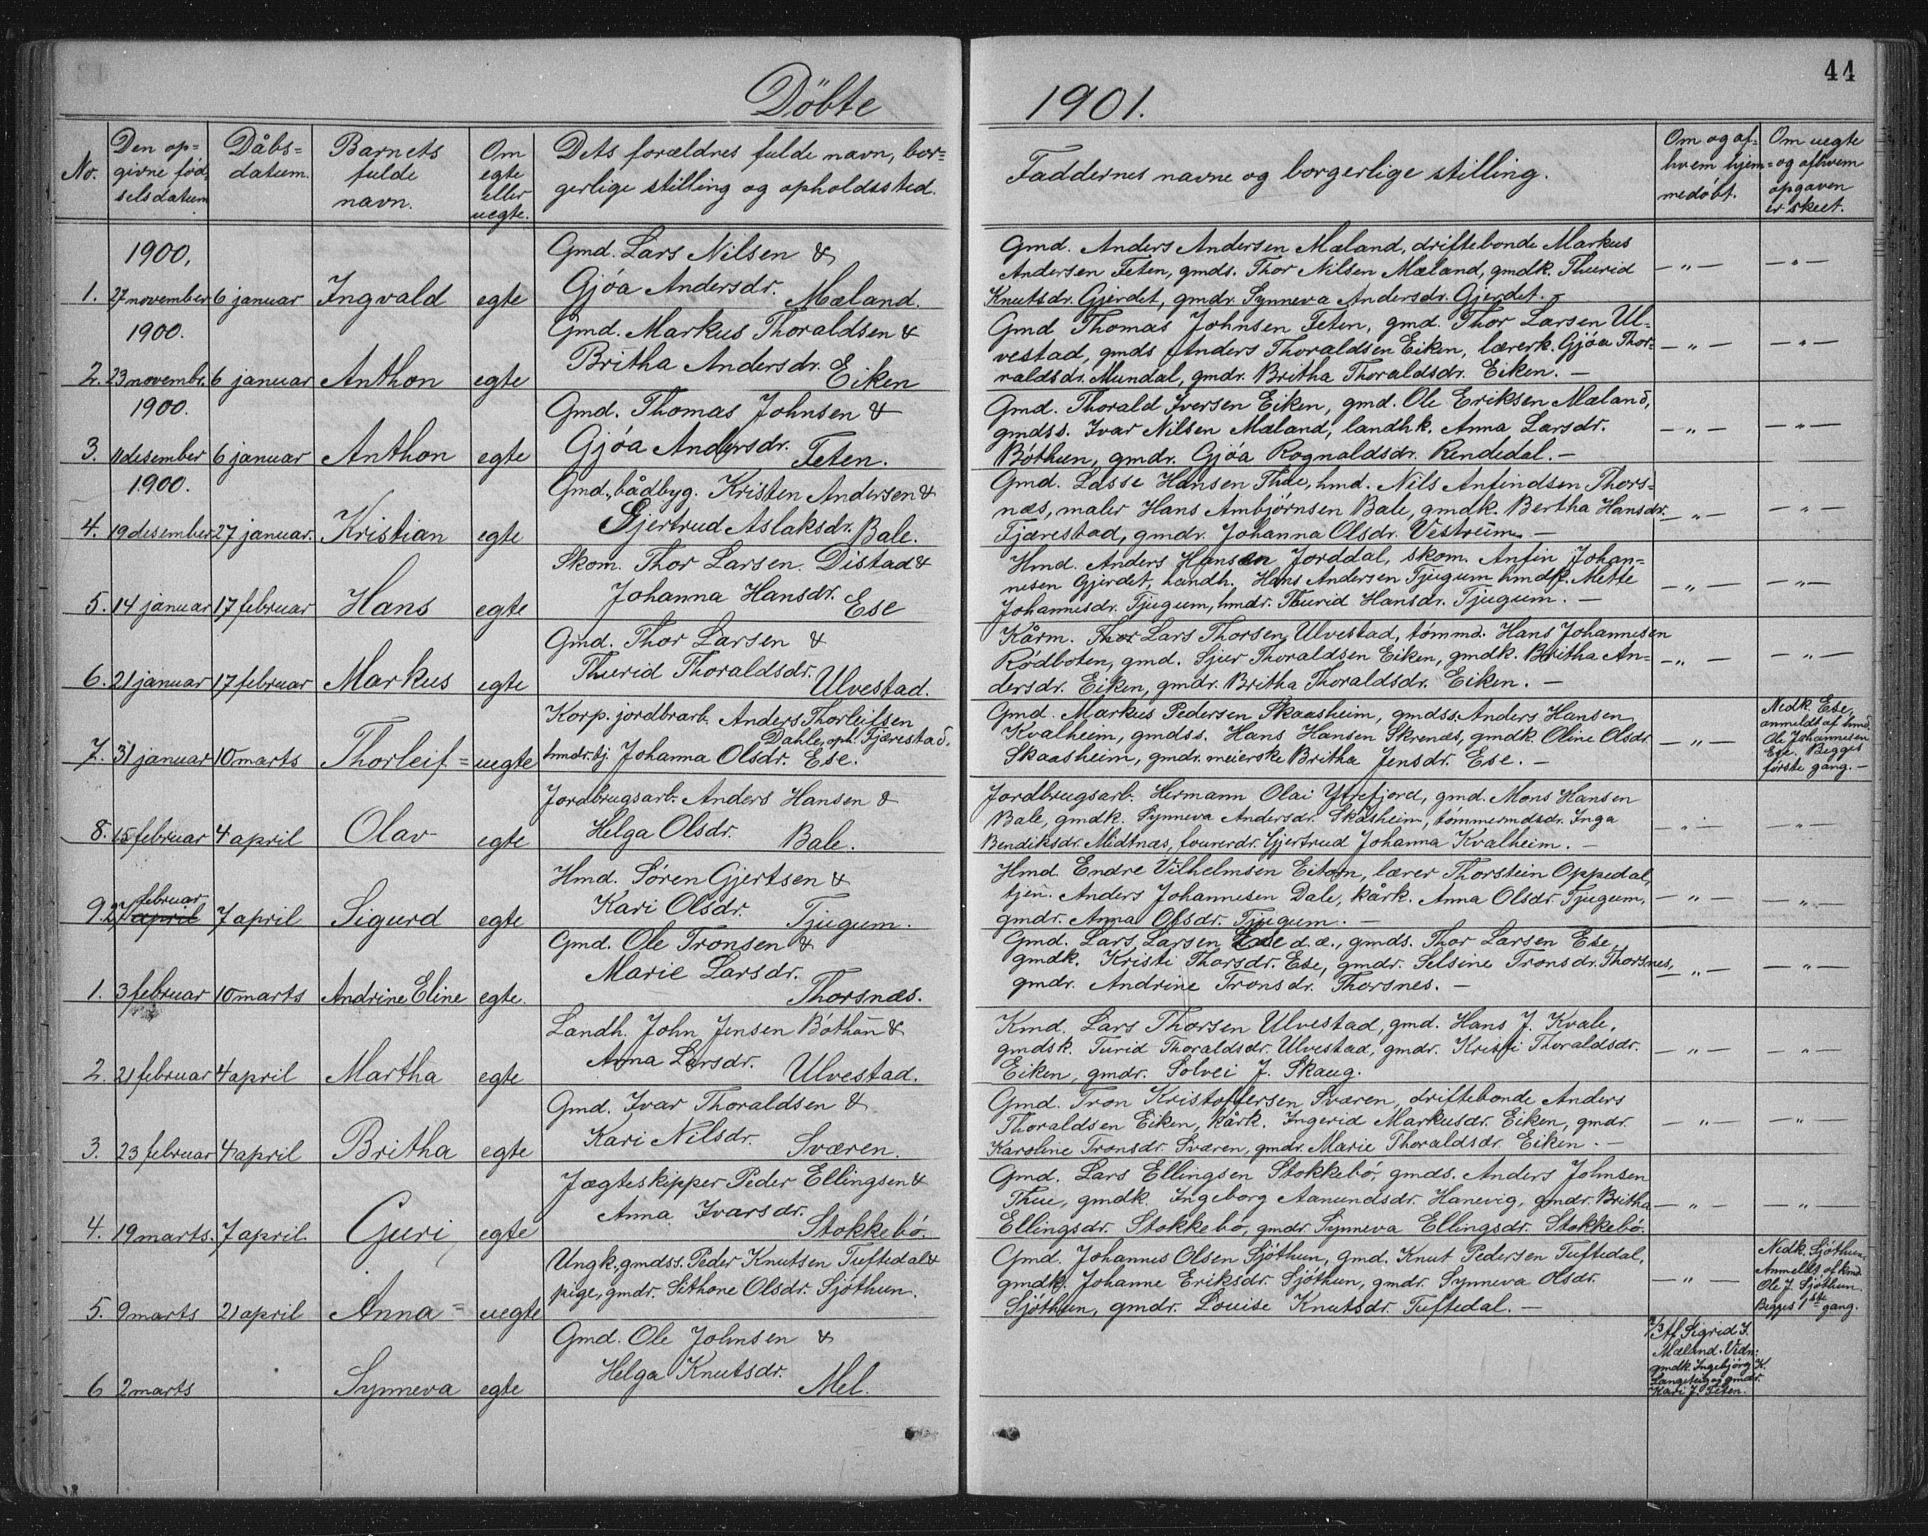 44
Döbte 1901.
No.
Den op=
givne fød
selsdatum
Dåbs=
datum.
Barnets
fulde
navn.
Om
egte
eller
uegte.
Dets forældres fulde navn, bor=
gerlige stilling og opholdssted.
Faddernes navne og borgerlige stilling.
Om og af
hvem hjem=
medøbt.
Om uegte
og afhvem
opgaven
er skeet.
1900, Gmd. Lars Nilsen &
1. 27 november 6 januar Ingvald egte Gjøa Andersdr. Mæland.
Gmd. Anders Andersen Mæland, driftebonde Markus
Andersen Feten, gmds. Thor Nilsen Mæland, gmdk. Thurid
Knutsdr. Gjerdet, gmdr. Synneva Andersdr. Gjerdet. —
— " — — " —
1900. Gmd. Markus Thoraldsen &
2. 23 novembr. 6 januar Anthon egte Britha Andersdr. Eiken
Gmd Thomas Johnsen Feten, gmd. Thor Larsen Ul=
vestad, gmds Anders Thoraldsen Eiken, lærerk. Gjøa Thor=
valdsdr. Mundal, gmdr. Britha Thoraldsdr. Eiken. —
— " — — " —
1900. Gmd. Thomas Johnsen &
3. 11 desember 6 januar Anthon egte Gjøa Andersdr. Feten.
Gmd. Thorald Iversen Eiken, gmd. Ole Eriksen Mæland,
gmdss. Ivar Nilsen Mæland, landhk. Anna Larsdr.
Bøthun, gmdr. Gjøa Rognaldsdr. Rendedal. —
— " — — " —
1900. Gmd., bådbyg. Kristen Andersen &
4. 19 desember 27 januar. Kristian egte Gjertrud Aslaksdr. Bale.
Gmd. Lasse Hansen Thue, hmd. Nils Anfindsen Thors=
næs, maler Hans Ambjørnsen Bale, gmdk. Bertha Hansdr.
Fjærestad, gmdr. Johanna Olsdr. Vestreim —
— " — — " —
Skom. Thor Larsen Distad &
5. 14 januar 17 februar Hans egte Johanna Hansdr. Ese
Hmd. Anders Hansen Jorddal, skom. Anfin Johan=
nesen Gjerdet, handh. Hans Andersen Tjugum hmdk. Mette
Johannesdr. Tjugum, hmdr. Thurid Hansdr. Tjugum. —
— " — — " —
Gmd. Thor Larsen &
6. 21 januar 17 februar Markus egte Thurid Thoraldsdr. Ulvestad.
Kårm. Thor Lars Thorsen Ulvestad, tømmd. Hans Johannesen
Rødboten, gmd. Sjur Thoraldsen Eiken, gmdk. Britha An=
dersdr. Eiken, gmdr. Britha Thoraldsdr. Eiken. —
— " — — " —
Korp. jordbrarb. Anders Thorleifsen
Dahle, oph. Fjærestad.
7. 31 januar 10 marts Thorleif = uegte hmdr. tj. Johanna Olsdr. Ese.
Gmd. Markus Pedersen Skaasheim, gmdss. Anders Hansen
Kvalheim, gmdss. Hans Hansen Skrenæs, gmdk. Oline Olsdr
Skaasheim, gmdr. meierske Britha Jensdr. Ese. —
— " —
Nedk. Ese,
anmeldt af hmd
Ole Johannesen
Ese. Begges
første gang. —
Jordbrugsarb. Anders Hansen &
8. 15 februar 4 april Olav egte Helga Olsdr. Bale.
Jordbrugsarb. Hermann Olai Ytrefjord, gmd. Mons Hansen
Bale, gmdk. Synneva Andersdr. Skåsheim, tømmermdsdr. Inga
Bendiksdr. Midtnæs, fourerdr. Gjertrud Johanna Kvalheim. —
— " — — " —
Hmd. Søren Gjertsen &
februar
9. 27 april 7 april Sigurd egte Kari Olsdr. Tjugum.
Hmd. Endre Vilhelmsen Eitorn, lærer Thorstein Oppedal,
tjen. Anders Johannesen Dale, kårk. Anna Olsdr. Tjugum,
gmdr. Anna Olsdr. Tjugum. —
— " — — " —
Gmd. Ole Tronsen &
1. 3 februar 10 marts Andrine Eline egte. Marie Larsdr. Thorsnæs.
Gmd. Lars Larsen Ese d.æ., gmds. Thor Larsen Ese,
gmdk. Kristi Thorsdr. Ese, gmdr. Selsine Tronsdr. Thorsnes,
gmdr. Andrine Tronsdr. Thorsnes. —
— " — — " —
Landh. John Jensen Bøthun &
2. 21 februar 4 april Martha egte Anna Larsdr. Ulvestad.
Kmd. Lars Thorsen Ulvestad, gmd. Hans J. Kvale,
gmdsk. Turid Thoraldsdr. Ulvestad, gmdr. Kristi Thoraldsdr.
Eiken, gmdr. Solvei J. Skaug.
— " — — " —
Gmd. Ivar Thoraldsen &
3. 23 februar 4 april Britha egte Kari Nilsdr. Sværen.
Gmd. Tron Kristoffersen Sværen, driftebonde Anders
Thoraldsen Eiken, kårk. Ingerid Markusdr. Eiken, gmdr.
Karoline Tronsdr. Sværen, gmdr. Marie Thoraldsdr. Eiken. —
— " — — " —
Jægteskipper Peder Ellingsen &
4. 19 marts. 7 april. Guri egte Anna Ivarsdr. Stokkebø.
Gmd. Lars Ellingsen Stokkebø, gmds. Anders Johnsen
Thue, gmdk. Ingeborg Aamundsdr. Hanevig, gmdr. Britha
Ellingsdr. Stokkebø, gmdr. Synneva Ellingsdr. Stokkebø.
— " — — " —
Ungk. gmdss. Peder Knutsen Tuftedal &
5. 9 marts 21 april Anna = uegte pige, gmdr. Sithone Olsdr. Sjøthun.
Gmd. Johannes Olsen Sjøthun, gmd. Knut Pedersen Tuftedal,
gmdk. Johanne Eriksdr. Sjøthun, gmdr. Synneva Olsdr.
Sjøthun, gmdr. Louise Knutsdr. Tuftedal. —
— " —
Nedk. Sjøthun.
Anmeldt af hmd
Ole J. Sjøthun.
Begges 1ste gang.
Gmd. Ole Johnsen &
6 2 marts Synneva egte Helga Knutsdr. Mel.
2/3 Af Sigrid I.
Mæland. Vidn:
gmdk. Ingebjørg K.
Langeteig og gmdr.
Kari J. Feten.